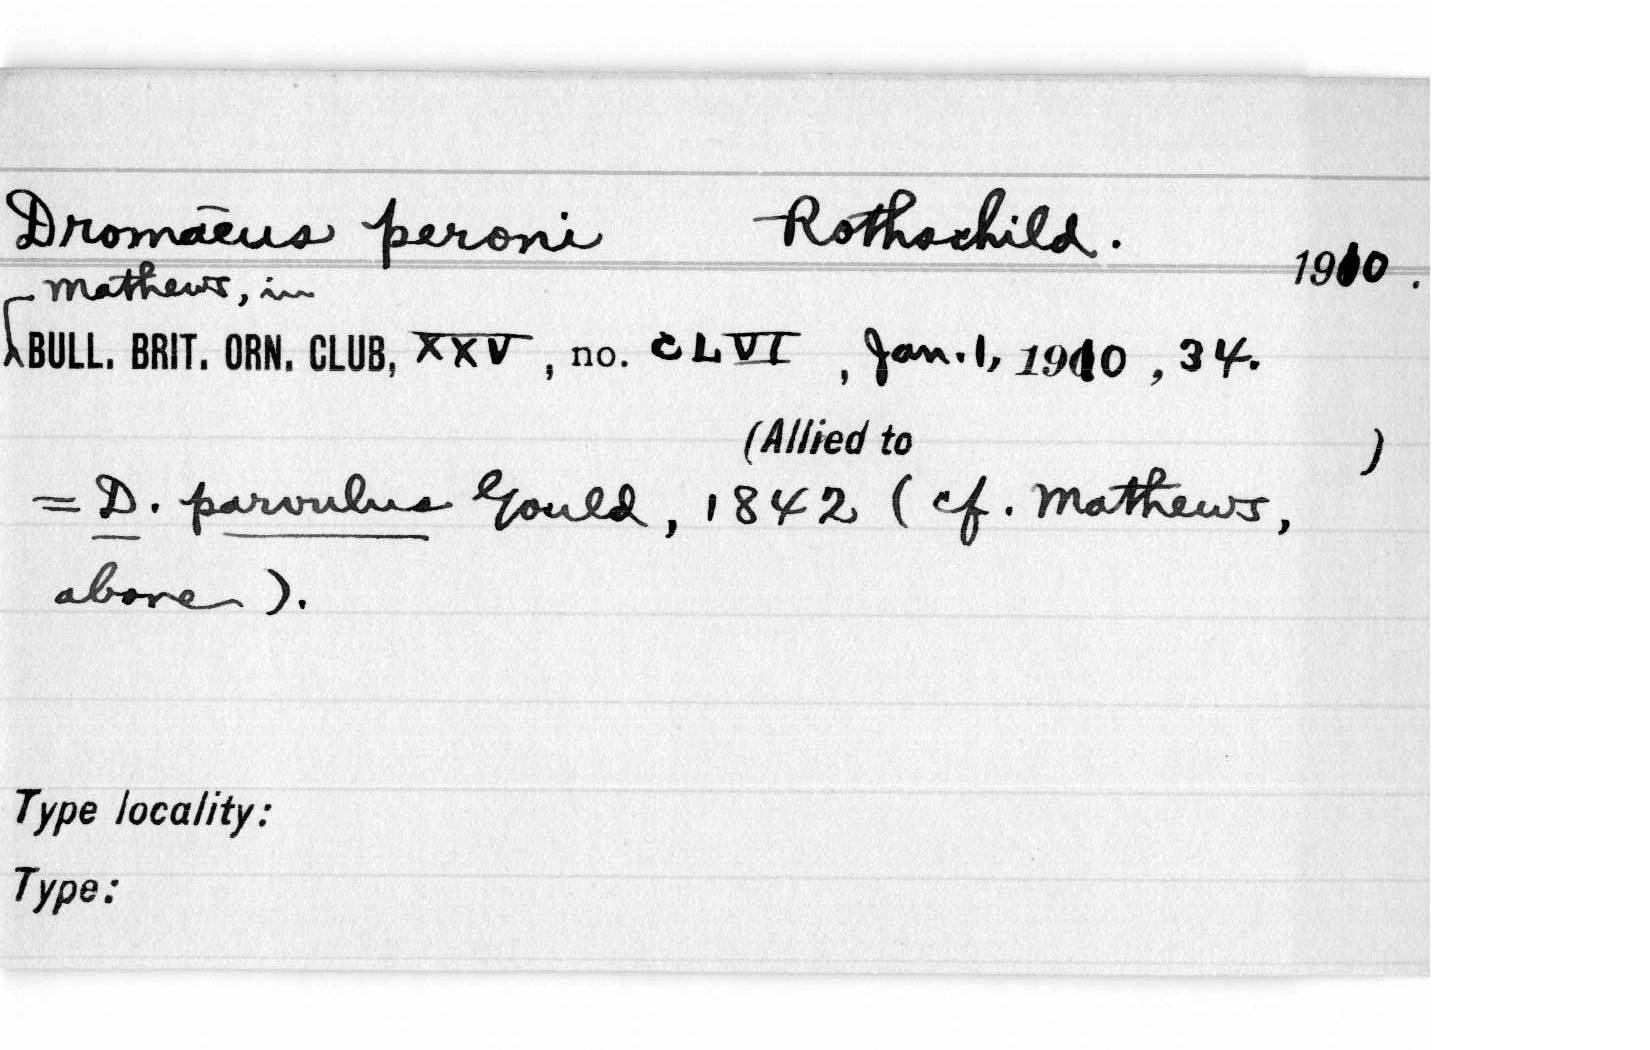 Dromaeus peroni Rothschild. 1910.
Mathews, in
BULL. BRIT. ORN. CLUB, XXV, no. CLVI, Jan. 1, 1910, 34.
(Allied to )
= D. parvulus Gould, 1842 (cf. Mathews,
above).
Type locality:
Type: